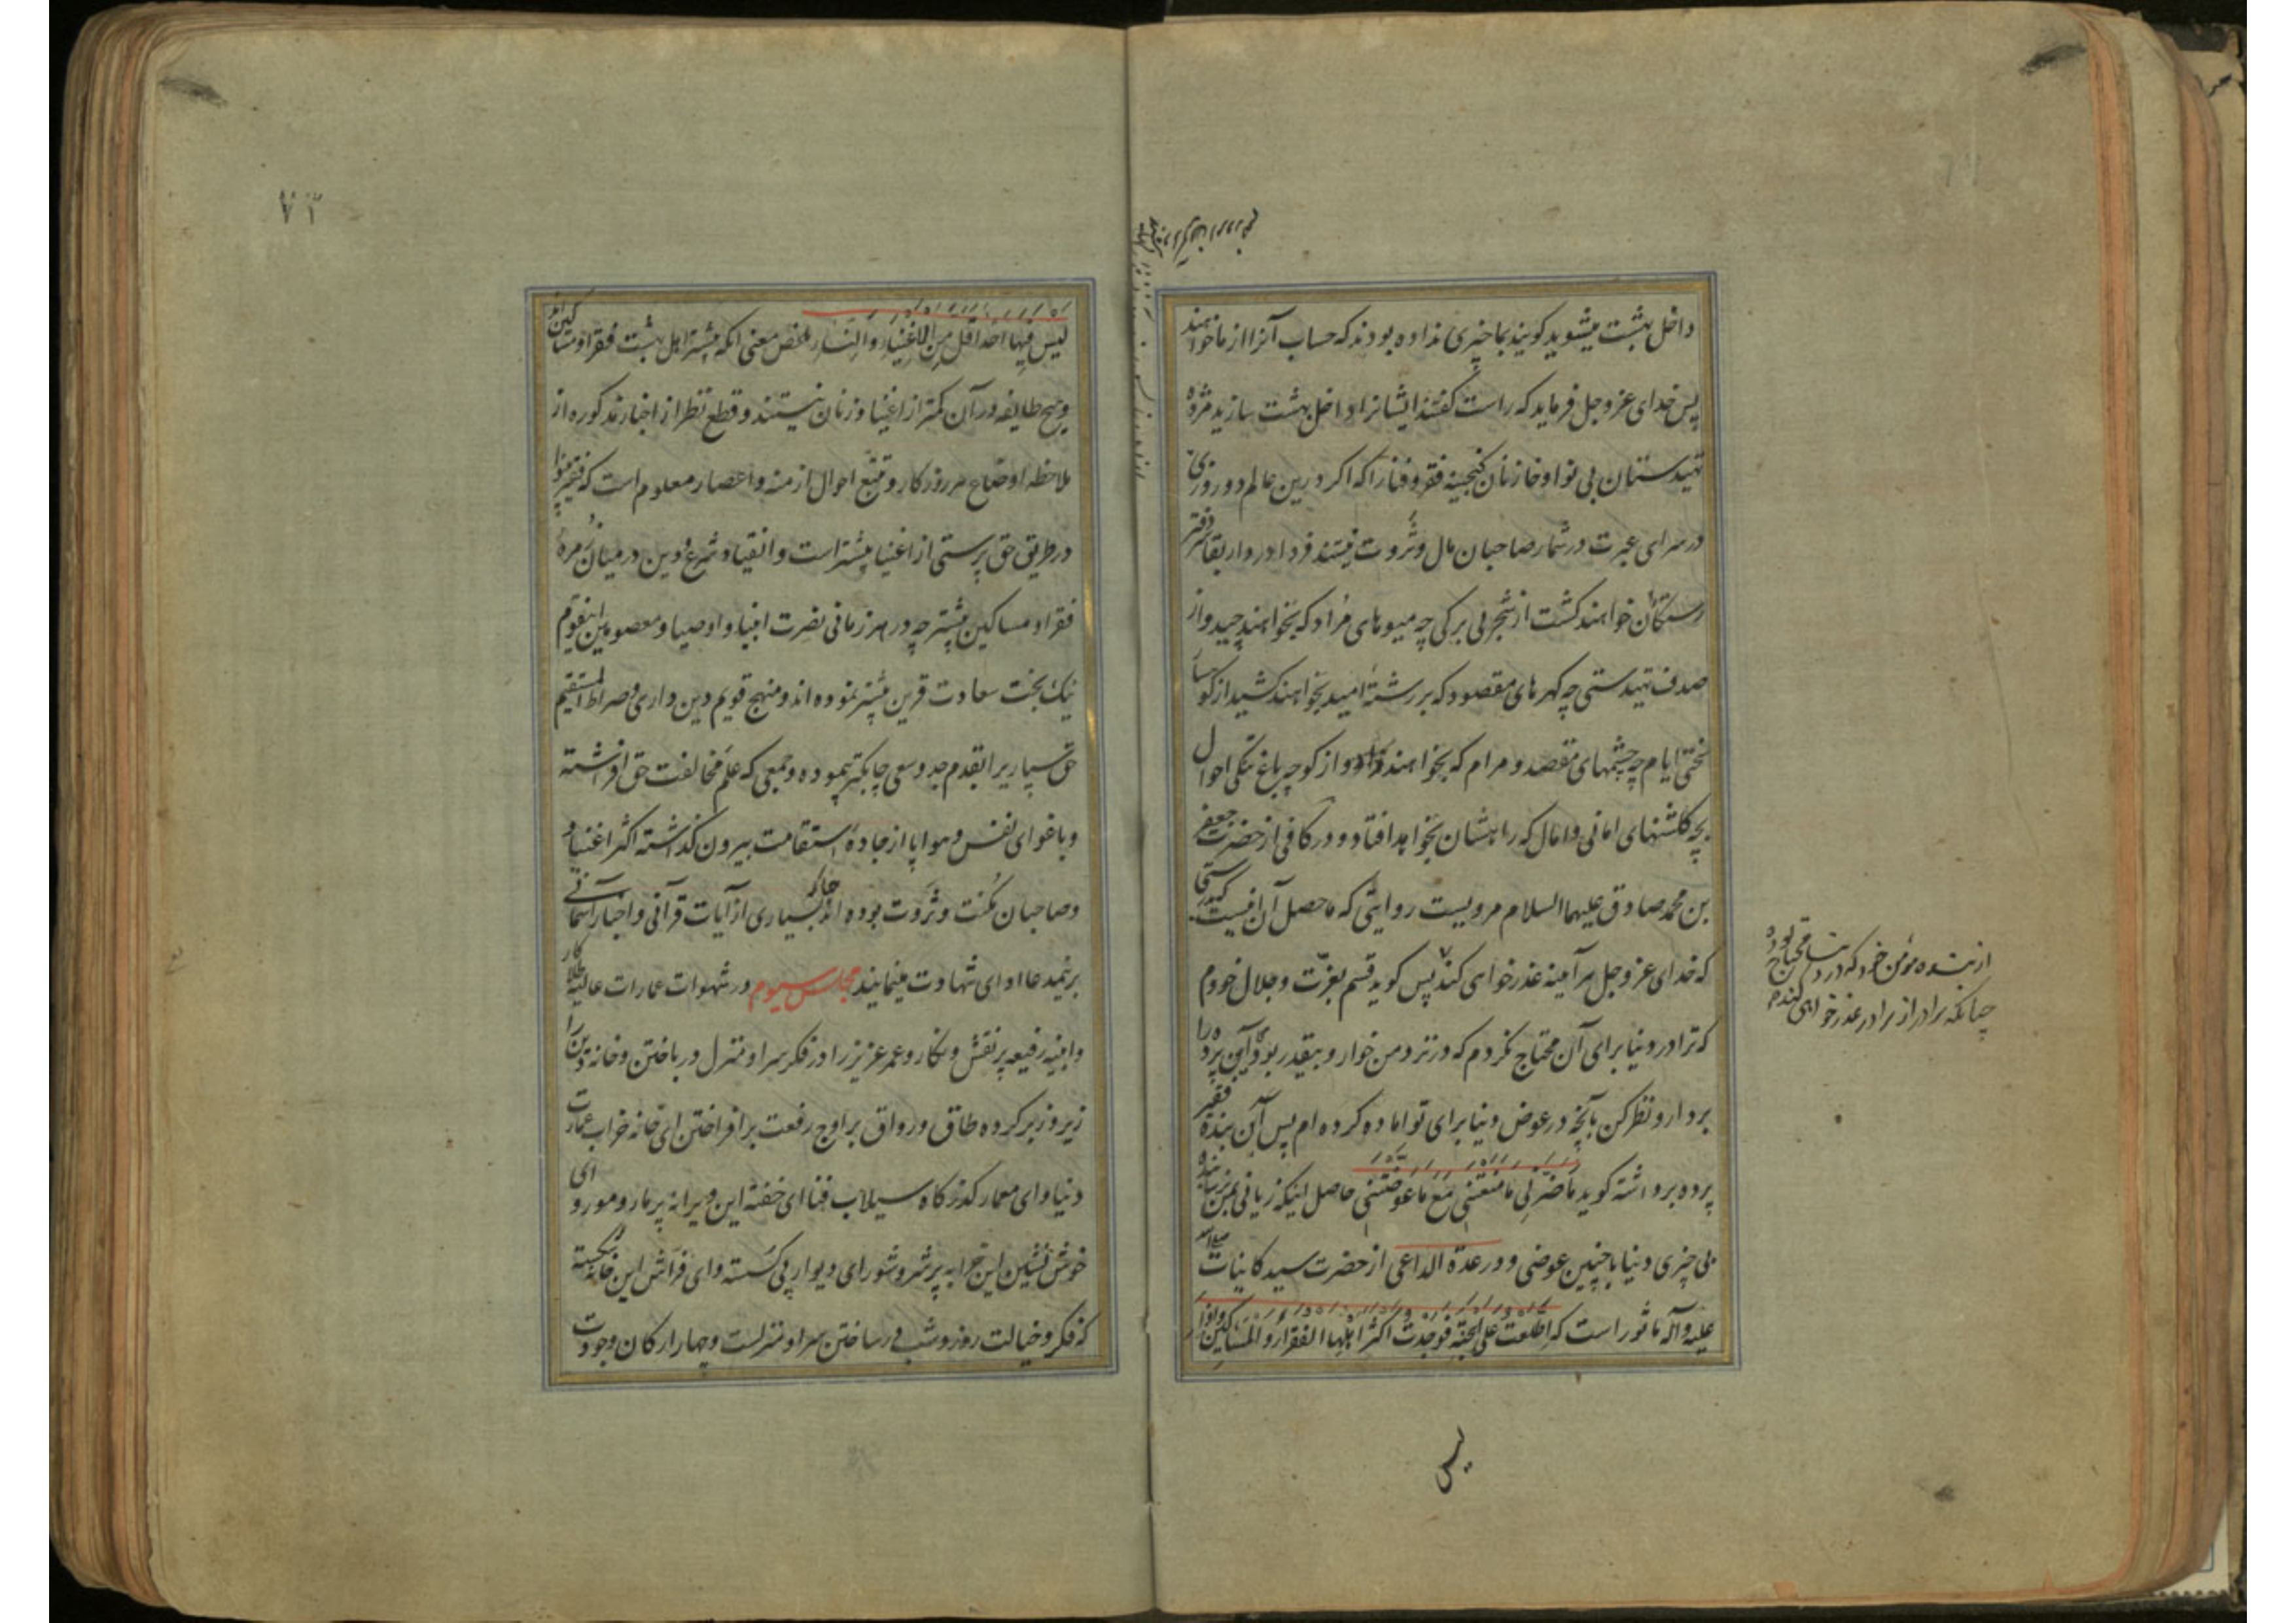 داخل بهشت میشوید کویند بما چیزی نداده بودند که حساب آنرا از ما خواهند
پس خدای عز و جل فرماید که راست کفتند ایشانرا داخل بهشت سازید مژده
تهیدستان بی نوا و خازنان کنجینه فقر و فنا را که اکر درین عالم دو روزی
در سرای عبرت در شمار صاحبان مال و ثروت نیستند فردا در دار بقا سر دفتر
رستکان خواهند کشت از شجر بی برکی چه میوهای مراد که نخواهند چید و از
صدف تهیدستی چه کهرهای مقصود که بر رشتهٔ امید نخواهند کشید از کوهسار
سختی ایام چه چشمهای مقصد و مرام که نخواهند و از کوچه باغ تنکی احوال
بچه کلشنهای امانی و امال که راهشان نخواهد افتاد و در کافی از حضرت جعفر
بن محمد صادق علیهما السلام مرویست روایتی که ماحصل آن اینست بدرستی
که خدای عز و جل هر آینه عذر خواهی کند پس کوید قسم بعزت و جلال خودم
که ترا در دنیا برای آن محتاج نکردم که در نزد من خوار و بیقدر بودی این پرده را
بردار و نظر کن بآنچه در عوض دنیا برای تو اماده کرده ام پس آن بنده فقیر
پرده برداشته کوید ما ضرنی ما منعتنی مع ما عوضتنی حاصل اینکه زیانی بمن نرسانیده
بی چیزی دنیا با چنین عوضی و در عدة الداعی از حضرت سید کاینات صلی الله
علیه و آله ماثور است که اطلعت علی الجنة فوجدت اکثر اهلها الفقراء و المساکین و اذا
لیس
از بنده مومن خود که در دنیا محتاج بوده
چنانکه برادر از برادر عذر خواهی کند
۷۳
لیس فیها احد اقل من الاغنیاء و النساء ملخص معنی انکه بیشتر اهل بهشت فقرا و مساکین اند
و هیچ طایفه در آن کمتر از اغنیا و زنان نیستند و قطع نظر از اخبار مذکوره از
ملاحظه اوضاع هر روزکار و تتبع احوال ازمنه و اعصار معلوم است که فقیر بینوا
در طریق حق پرستی از اغنیا بیشتر است و انقیاد شرع و دین در میان زمرهٔ
فقرا و مساکین بیشتر چه در هر زمانی نصرت انبیا و اوصیا و معصومین اینقوم
نیک بخت سعادت قرین بیشتر نموده اند و منهج قویم دین داری و صراط المستقیم
حق سپاریرا بقدم جد و سعی چابکتر پیموده و جمعی که علم مخالفت حق افراشته
و باغوای نفس و هوا پا از جادهٔ استقامت بیرون کذاشته اکثر اغنیا و
و صاحبان مکنت و ثروت بوده اند چنانکه بسیاری از آیات قرآنی و اخبار آسمانی
برینمدعا ادای شهادت مینمایند مجلس سیوم در شهوات عمارات عالیه طلاکار
و ابنیه رفیعه پر نقش و نکار و عمر عزیز را در فکر سرا و منزل در باختن و خانه دین را
زیر و زبر کرده طاق و رواق بر اوج رفعت بر افراختن ای خانه خراب عمارت
دنیا و ای معمار کذرکاه سیلاب فنا ای خفته این ویرانه پر مار و مور و ای
خوش نشین این خرابه پر شر و شور ای دیوار پی کسسته و ای فراش این خانه شکسته
که فکر و خیالت روز و شب در ساختن سرا و منزلست و چهار ارکان وجودت